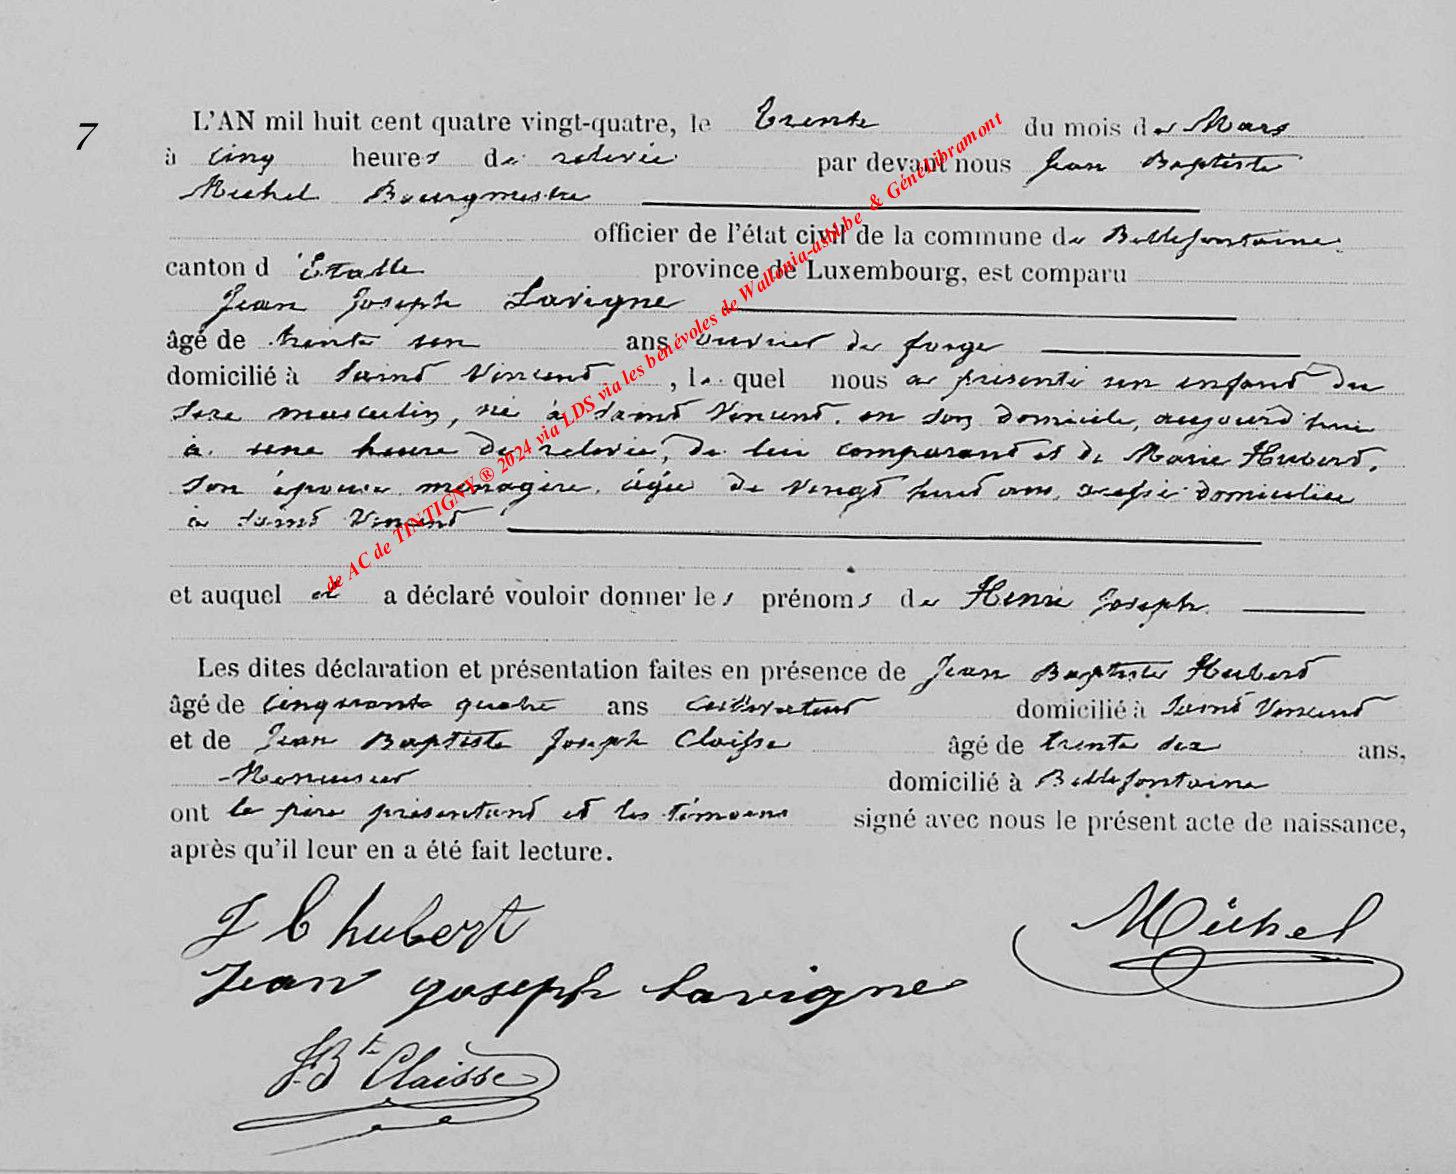 7
L'AN mil huit cent quatre vingt-quatre, le trente du mois de Mars
à cinq heures de relevée par devant nous Jean Baptiste
Michel Bourgmestre
officier de l'état civil de la commune de Bellefontaine
canton d'Etalle province de Luxembourg, est comparu
Jean Joseph Lavigne
âgé de trente ans ouvrier de forge
domicilié à Saint Vincent, lequel nous a présenté un enfant du
sexe masculin, né à Saint Vincent, en son domicile, aujourd'hui
à une heure de relevée, de lui comparant et de Marie Hubert,
son épouse ménagère, âgée de vingt huit ans, aussi domiciliée
à Saint Vincent
et auquel il a déclaré vouloir donner les prénoms de Henri Joseph
Les dites déclaration et présentation faites en présence de Jean Baptiste Hubert
âgé de cinquante quatre ans cultivateur domicilié à Saint Vincent
et de Jean Baptiste Joseph Claisse âgé de trente ans,
Menuisier domicilié à Bellefontaine
ont le père présentant et les témoins signé avec nous le présent acte de naissance,
après qu'il leur en a été fait lecture.
J B hubert
Michel
Jean joseph Lavigne
J. Bte Claisse
de AC de TINTIGNY ® 2024 via LDS via les bénévoles de Wallonia-asbl.be & Généalibramont